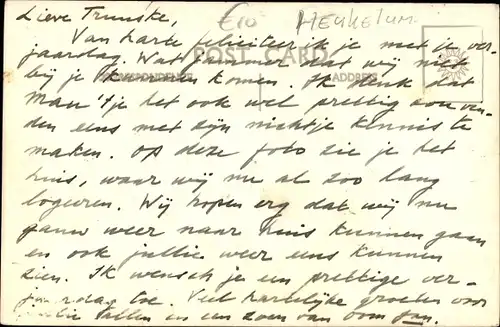 Lieve Truuske, €10 HEUKELUM.
Van harte feliciteer ik je met je ver-
jaardag. Wat jammer dat wij niet
POST CARD
bij je kunnen komen. Ik denk dat
CORRESPONDENCE ADDRESS
Man'tje het ook wel prettig zou vin-
den eens met zijn nichtje kennis te
maken. Op deze foto zie je het
huis, waar wij nu al zoo lang
logeeren. Wij hopen erg dat wij nu
gauw weer naar huis kunnen gaan
en ook jullie weer eens kunnen
zien. Ik wensch je een prettige ver-
jaardag toe. Veel hartelijke groeten voor
jullie allen en een zoen van oom Jan.